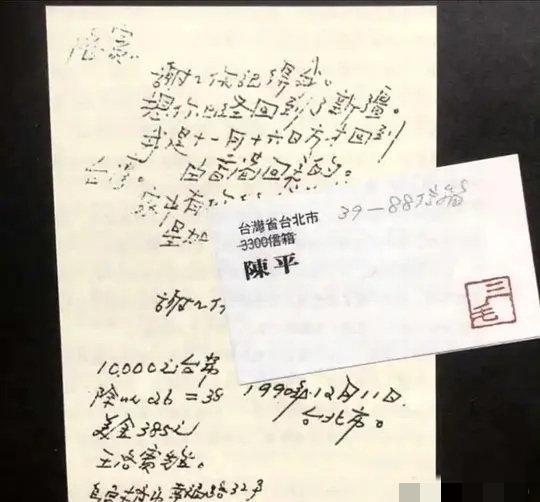 洛賓：
謝謝你記得我。
想你已經回到了新疆。
我是十一月十六日方才回到
台灣。由香港回來的。
家中有
謝謝
台灣省台北市
3300信箱
39-88信箱
陳平
三毛
10.000元台幣
除以 26 = 385
美金385元
王洛賓先生。
1990年12月11日.
台北市。